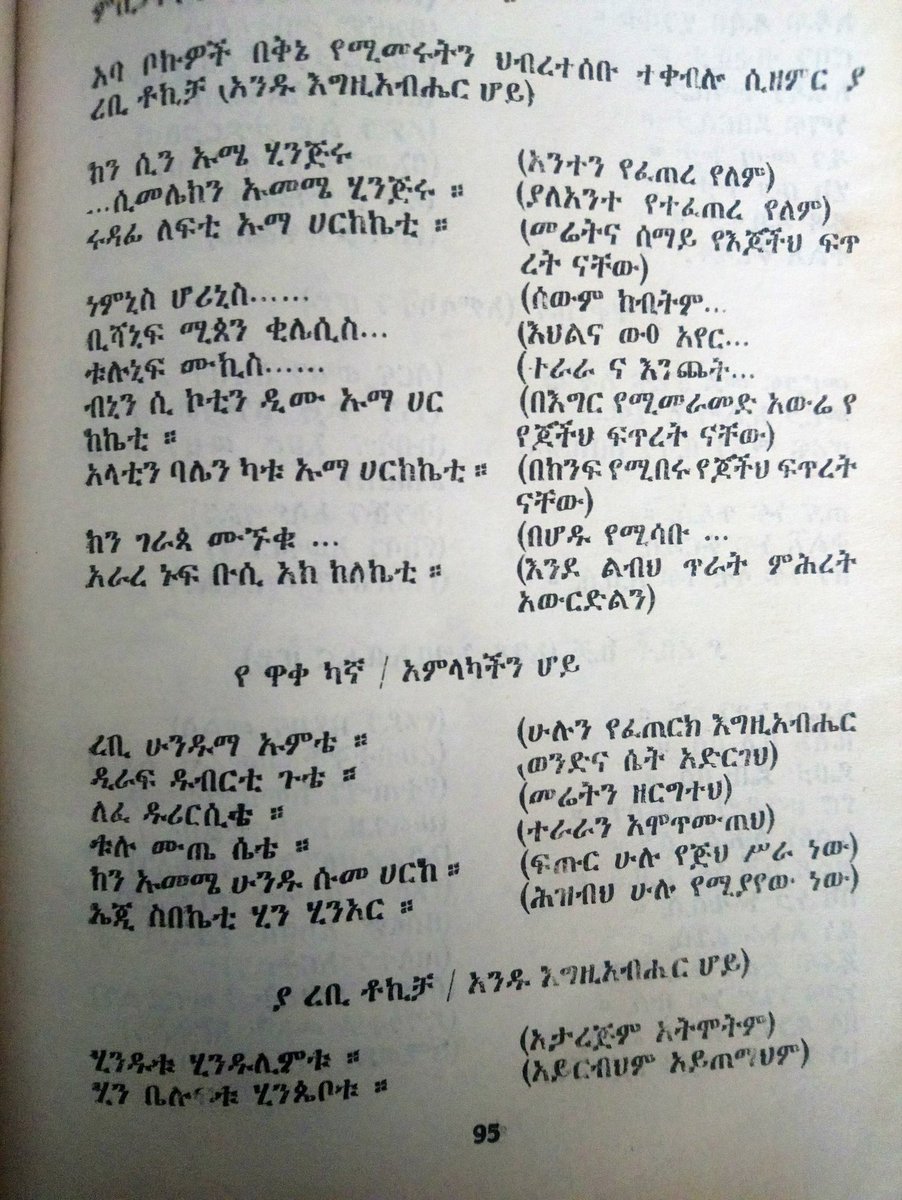 አባ ቦኩዎች በቅኔ የሚመሩትን ህብረተሰቡ ተቀብሎ ሲዘምር ያ
ረቢ ቶኪቻ (አንዱ እግዚአብሔር ሆይ)
ከን ሲን ኡሜ ሂንጅሩ (አንተን የፈጠረ የለም)
...ሲመሌከን ኡመሜ ሂንጅሩ ። (ያለአንተ የተፈጠረ የለም)
ሩዳፊ ለፍቲ ኡማ ሀርከኬቲ ። (መሬትና ሰማይ የእጆችህ ፍጥ
ረት ናቸው)
ነምኒስ ሆሪኒስ...... (ሰውም ከብትም...
ቢሻኒፍ ሚጳን ቂሌሲስ... (እህልና ውዐ አየር...
ቱሉኒፍ ሙኪስ...... (ተራራ ና እንጨት...
ብኒን ሲ ኮቲን ዲሙ ኡማ ሀር (በእግር የሚመራመድ አውሬ የ
ከኬቲ ። የጆችህ ፍጥረት ናቸው)
አላቲን ባሌን ካቱ ኡማ ሀርከኬቲ ። (በክንፍ የሚበሩ የጆችህ ፍጥረት
ናቸው)
ከን ገራጳ ሙኙቁ ... (በሆዱ የሚሳቡ ...
አራረ ኑፍ ቡሲ አከ ከለኬቲ ። (እንደ ልብህ ጥራት ምሕረት
አውርድልን)
የ ዋቀ ካኛ / አምላካችን ሆይ
ረቢ ሁንዱማ ኡምቴ ። (ሁሉን የፈጠርክ እግዚአብሔር
ዲራፍ ዱብርቲ ጉቴ ። (ወንድና ሴት አድርገህ)
ለፈ ዱሪርሲቴ ። (መሬትን ዘርግተህ)
ቱሉ ሙጤ ሴቴ ። (ተራራን አሞጥሙጠህ)
ከን ኡመሜ ሁንዱ ሱመ ሀርከ ። (ፍጡር ሁሉ የጅህ ሥራ ነው)
ኤጂ ስበኬቲ ሂን ሂንአር ። (ሕዝብህ ሁሉ የሚያየው ነው)
ያ ረቢ ቶኪቻ / አንዱ እግዚአብሔር ሆይ)
ሂንዱቱ ሂንዱሊምቱ ። (አታረጅም አትሞትም)
ሂን ሂንጴቦቱ ። (አይርብህም አይጠማህም)
95